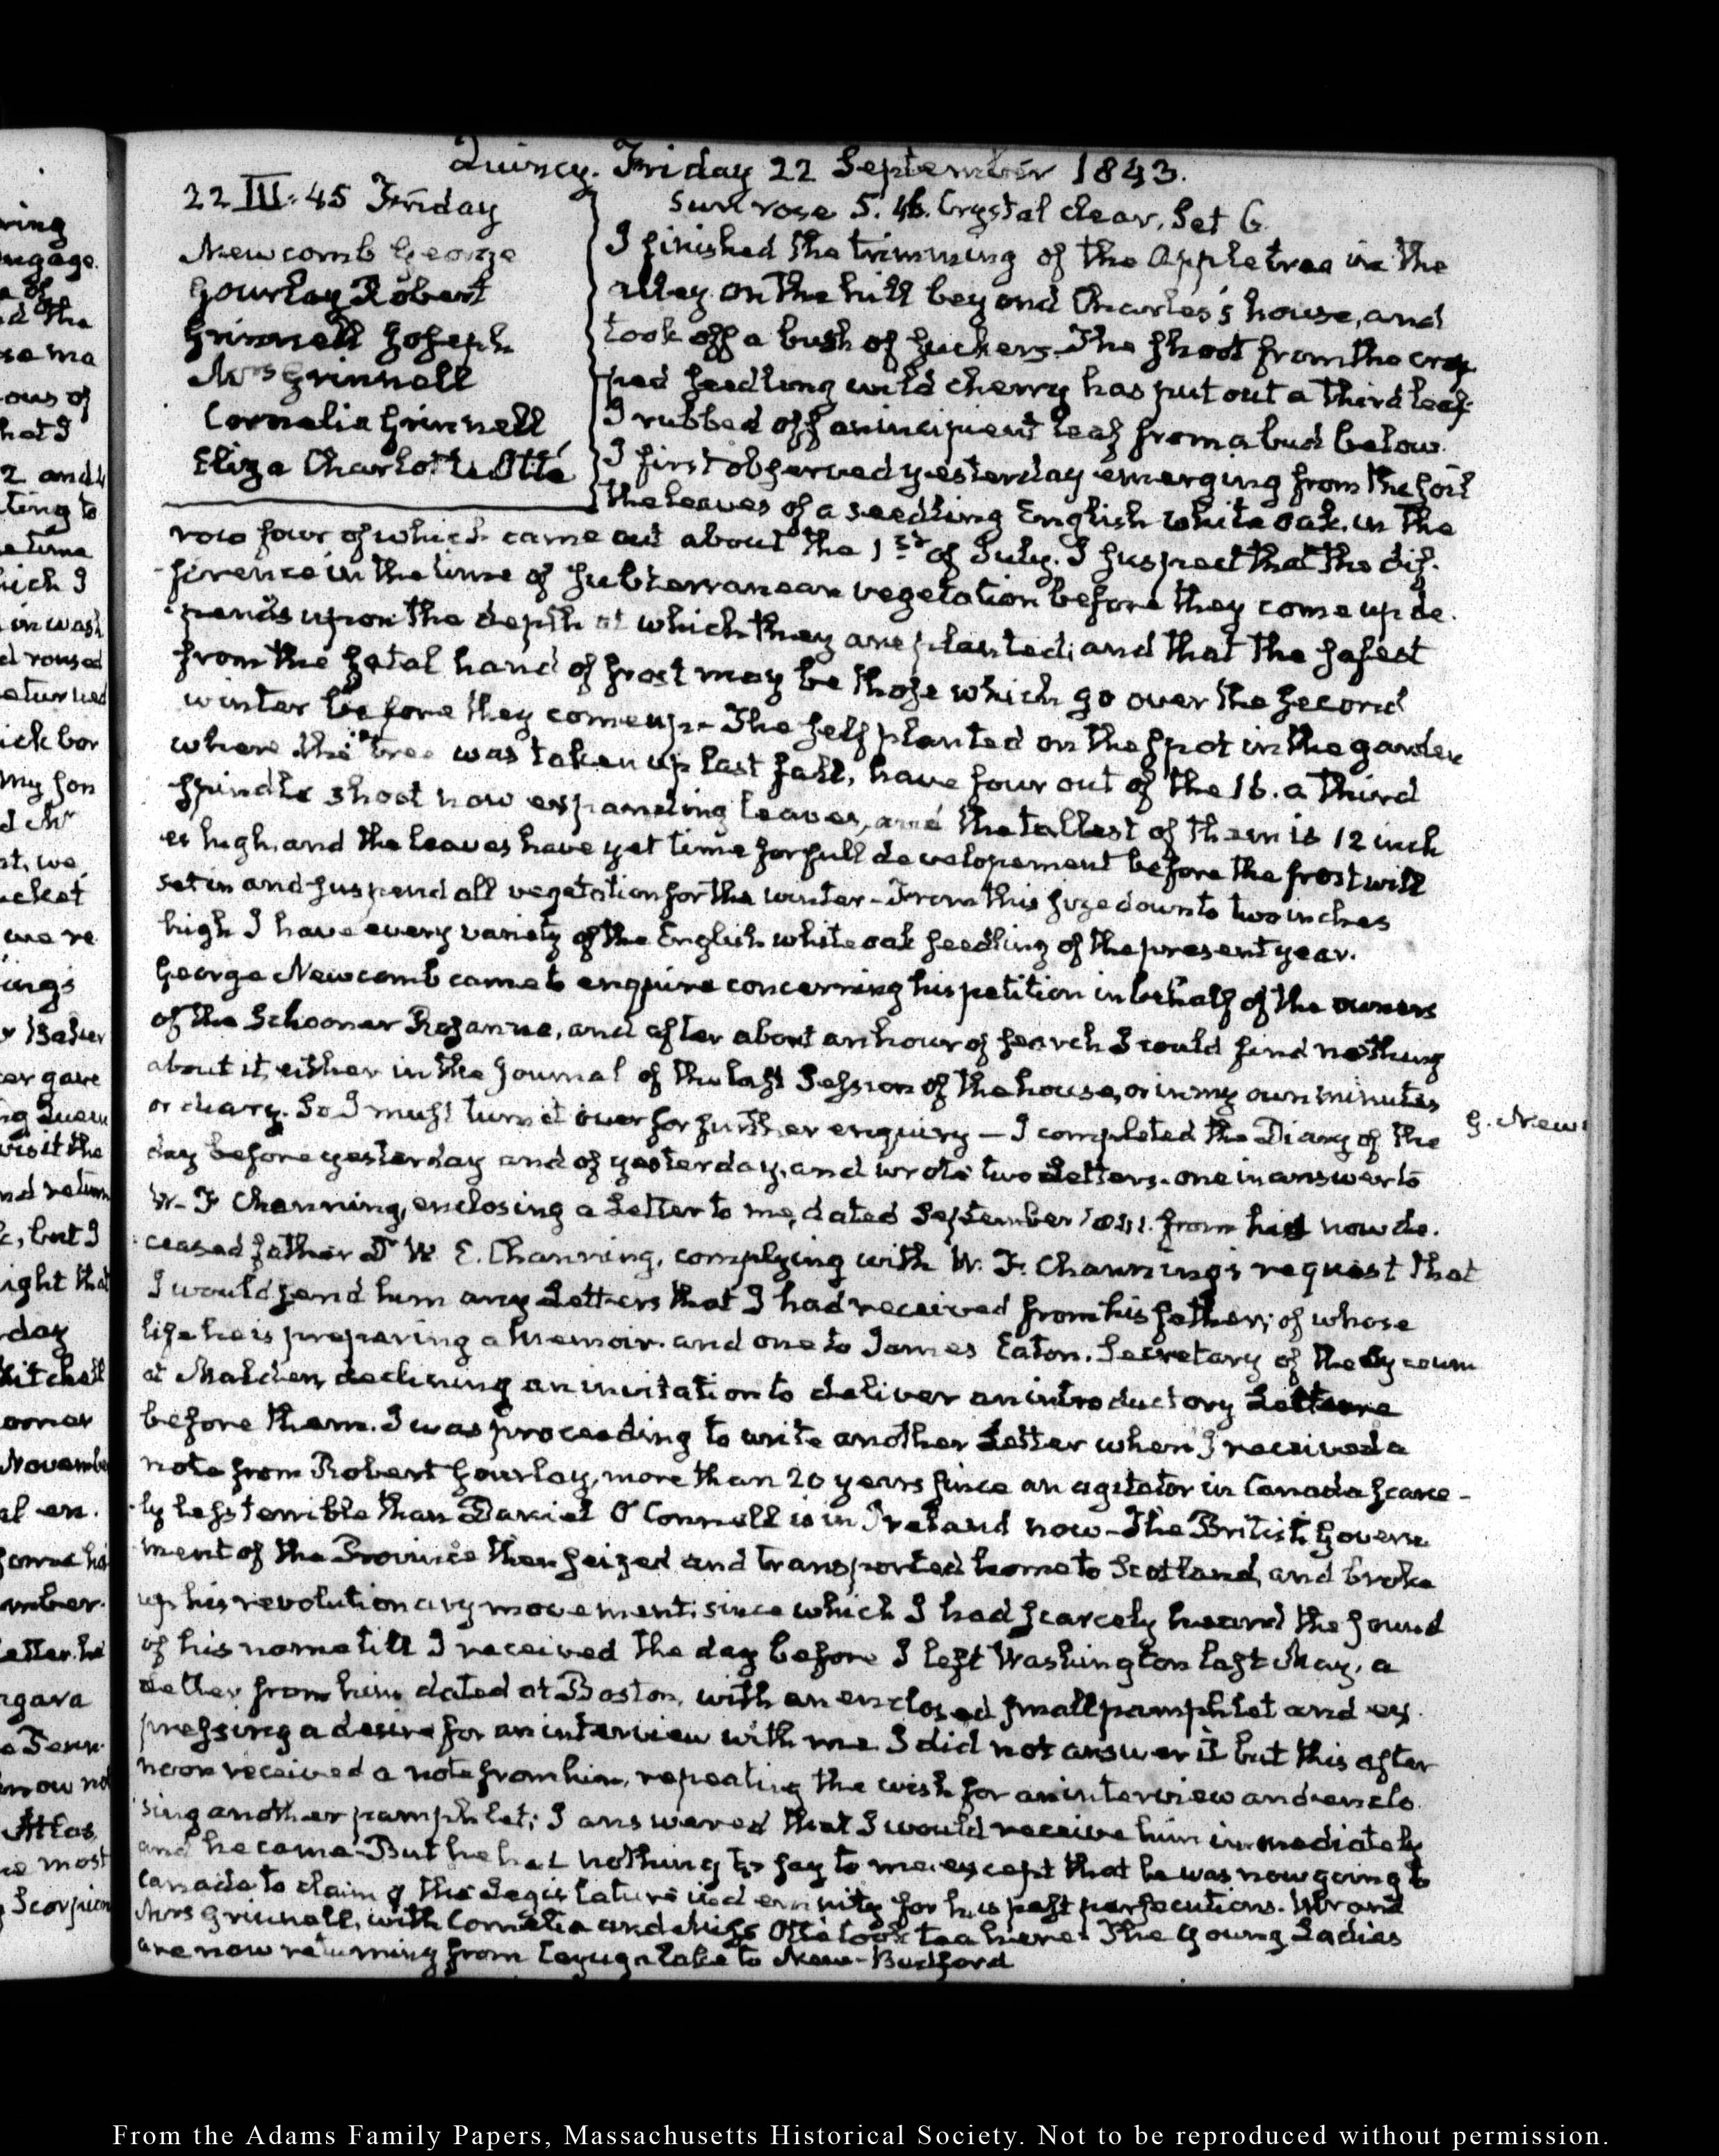 Quincy. Friday 22 September 1843.
22 III: 45 Friday
Newcomb George
Gourlay Robert
Grinnell Joseph
Mrs Grinnell
Cornelia Grinnell
Eliza Charlotte Otté
Sun rose 5. 46. Crystal clear. Set 6
I finished the trimming of the Appletree in the
alley on the hill beyond Charles's house, and
took off a bush of suckers. The shoot from the crop
ped seedling wild cherry has put out a third leaf.
I rubbed off an incipient leaf from a bud below.
I first observed yesterday emerging from the soil
the leaves of a seedling English white oak, in the
row four of which came out about the 1st of July. I suspect that the dif-
ference in the time of subterranean vegetation before they come up de-
pends upon the depth at which they are planted; and that the safest
from the fatal hand of frost may be those which go over the second
winter before they come up- The self planted on the spot in the garden
where the tree was taken up last fall, have four out of the 16. a third
spindle shoot now expanding leaves, and the tallest of them is 12 inch
es high, and the leaves have yet time for full developement before the frost will
set in and suspend all vegetation for the winter- From this size down to two inches
high I have every variety of the English white oak seedling of the present year.
George Newcomb came to enquire concerning his petition in behalf of the owners
of the Schooner Rosanna, and after about an hour of search I could find nothing
about it, either in the Journal of the last Session of the house, or in my own minutes
or diary. So I must turn it over for further enquiry — I completed the Diary of the
day before yesterday and of yesterday, and wrote two Letters. one in answer to
W. F Channing, enclosing a Letter to me, dated September from his now de-
ceased father Dr W. E. Channing, complying with W. F. Channing's request that
I would send him any Letters that I had received from his father; of whose
life he is preparing a Memoir. and one to James Eaton. Secretary of the Lyceum
at Malden, declining an invitation to deliver an introductory Lecture
before them. I was proceeding to write another Letter when I received a
note from Robert Gourlay, more than 20 years since an agitator in Canada scarce-
ly less terrible than Daniel O'Connell is in Ireland now- The British Govern
ment of the Province then seized and transported home to Scotland, and broke
up his revolutionary movement: since which I had scarcely heard the sound
of his name till I received the day before I left Washington last May, a
Letter from him dated at Boston, with an enclosed small pamphlet and ex-
pressing a desire for an interview with me. I did not answer it but this after
noon received a note from him, repeating the wish for an interview and enclo
sing another pamphlet; I answered that I would receive him immediately
and he came- But he had nothing to say to me, except that he was now going to
Canada to claim of the Legislature indemnity for his past persecutions. Mr and
Mrs Grinnell, with Cornelia and Miss Otté took tea here. The young Ladies
are now returning from Cayuga lake to New-Bedford
G. New
From the Adams Family Papers, Massachusetts Historical Society. Not to be reproduced without permission.